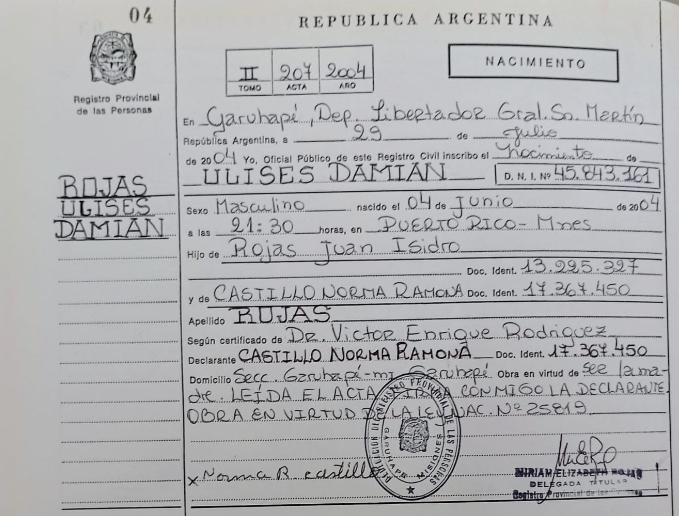 04
REPUBLICA ARGENTINA
Registro Provincial
de las Personas
II 207 2004
TOMO ACTA AÑO
NACIMIENTO
En Garuhapí, Dep. Libertador Gral. Sn. Martín
República Argentina, a 29 de Julio
de 2004 Yo, Oficial Público de este Registro Civil inscribo el Nacimiento de
ULISES DAMIAN D. N. I. Nº 45.843.161
ROJAS
ULISES
DAMIAN
Sexo Masculino nacido el 04 de Junio de 2004
a las 21:30 horas, en PUERTO RICO - Mnes
Hijo de Rojas Juan Isidro
Doc. Ident. 13.295.327
y de CASTILLO NORMA RAMONA Doc. Ident. 17.367.450
Apellido ROJAS
Según certificado de Dr. Victor Enrique Rodriguez
Declarante CASTILLO NORMA RAMONA Doc. Ident. 17.367.450
Domicilio Secc. Garuhapí-mi Garuhapí Obra en virtud de see la ma-
dre. LEIDA EL ACTA FIRMA CONMIGO LA DECLARANTE
OBRA EN VIRTUD LA LEY NAC. Nº 25819
DIRECCION DEL REGISTRO PROVINCIAL DE LAS PERSONAS
GARUHAPE MISIONES
x Norma R. castillo
MIRIAM ELIZABETH ROJAS
DELEGADA TITULAR
Registro Provincial de las